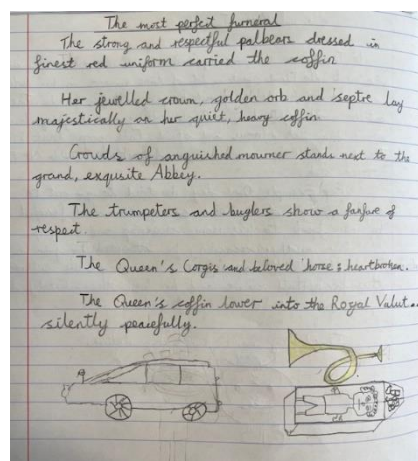 The most perfect funeral
The strong and respectful palbears dressed in
finest red uniform carried the coffin
Her jewelled crown, golden orb and septre lay
majestically on her quiet, heavy coffin.
Crowds of anguished mourner stands next to the
grand, exqusite Abbey.
The trumpeters and buglers show a fanfare of
respect.
The Queen's Corgis and beloved horse is heartbroken.
The Queen's coffin lower into the Royal Valut...
silently peacefully.